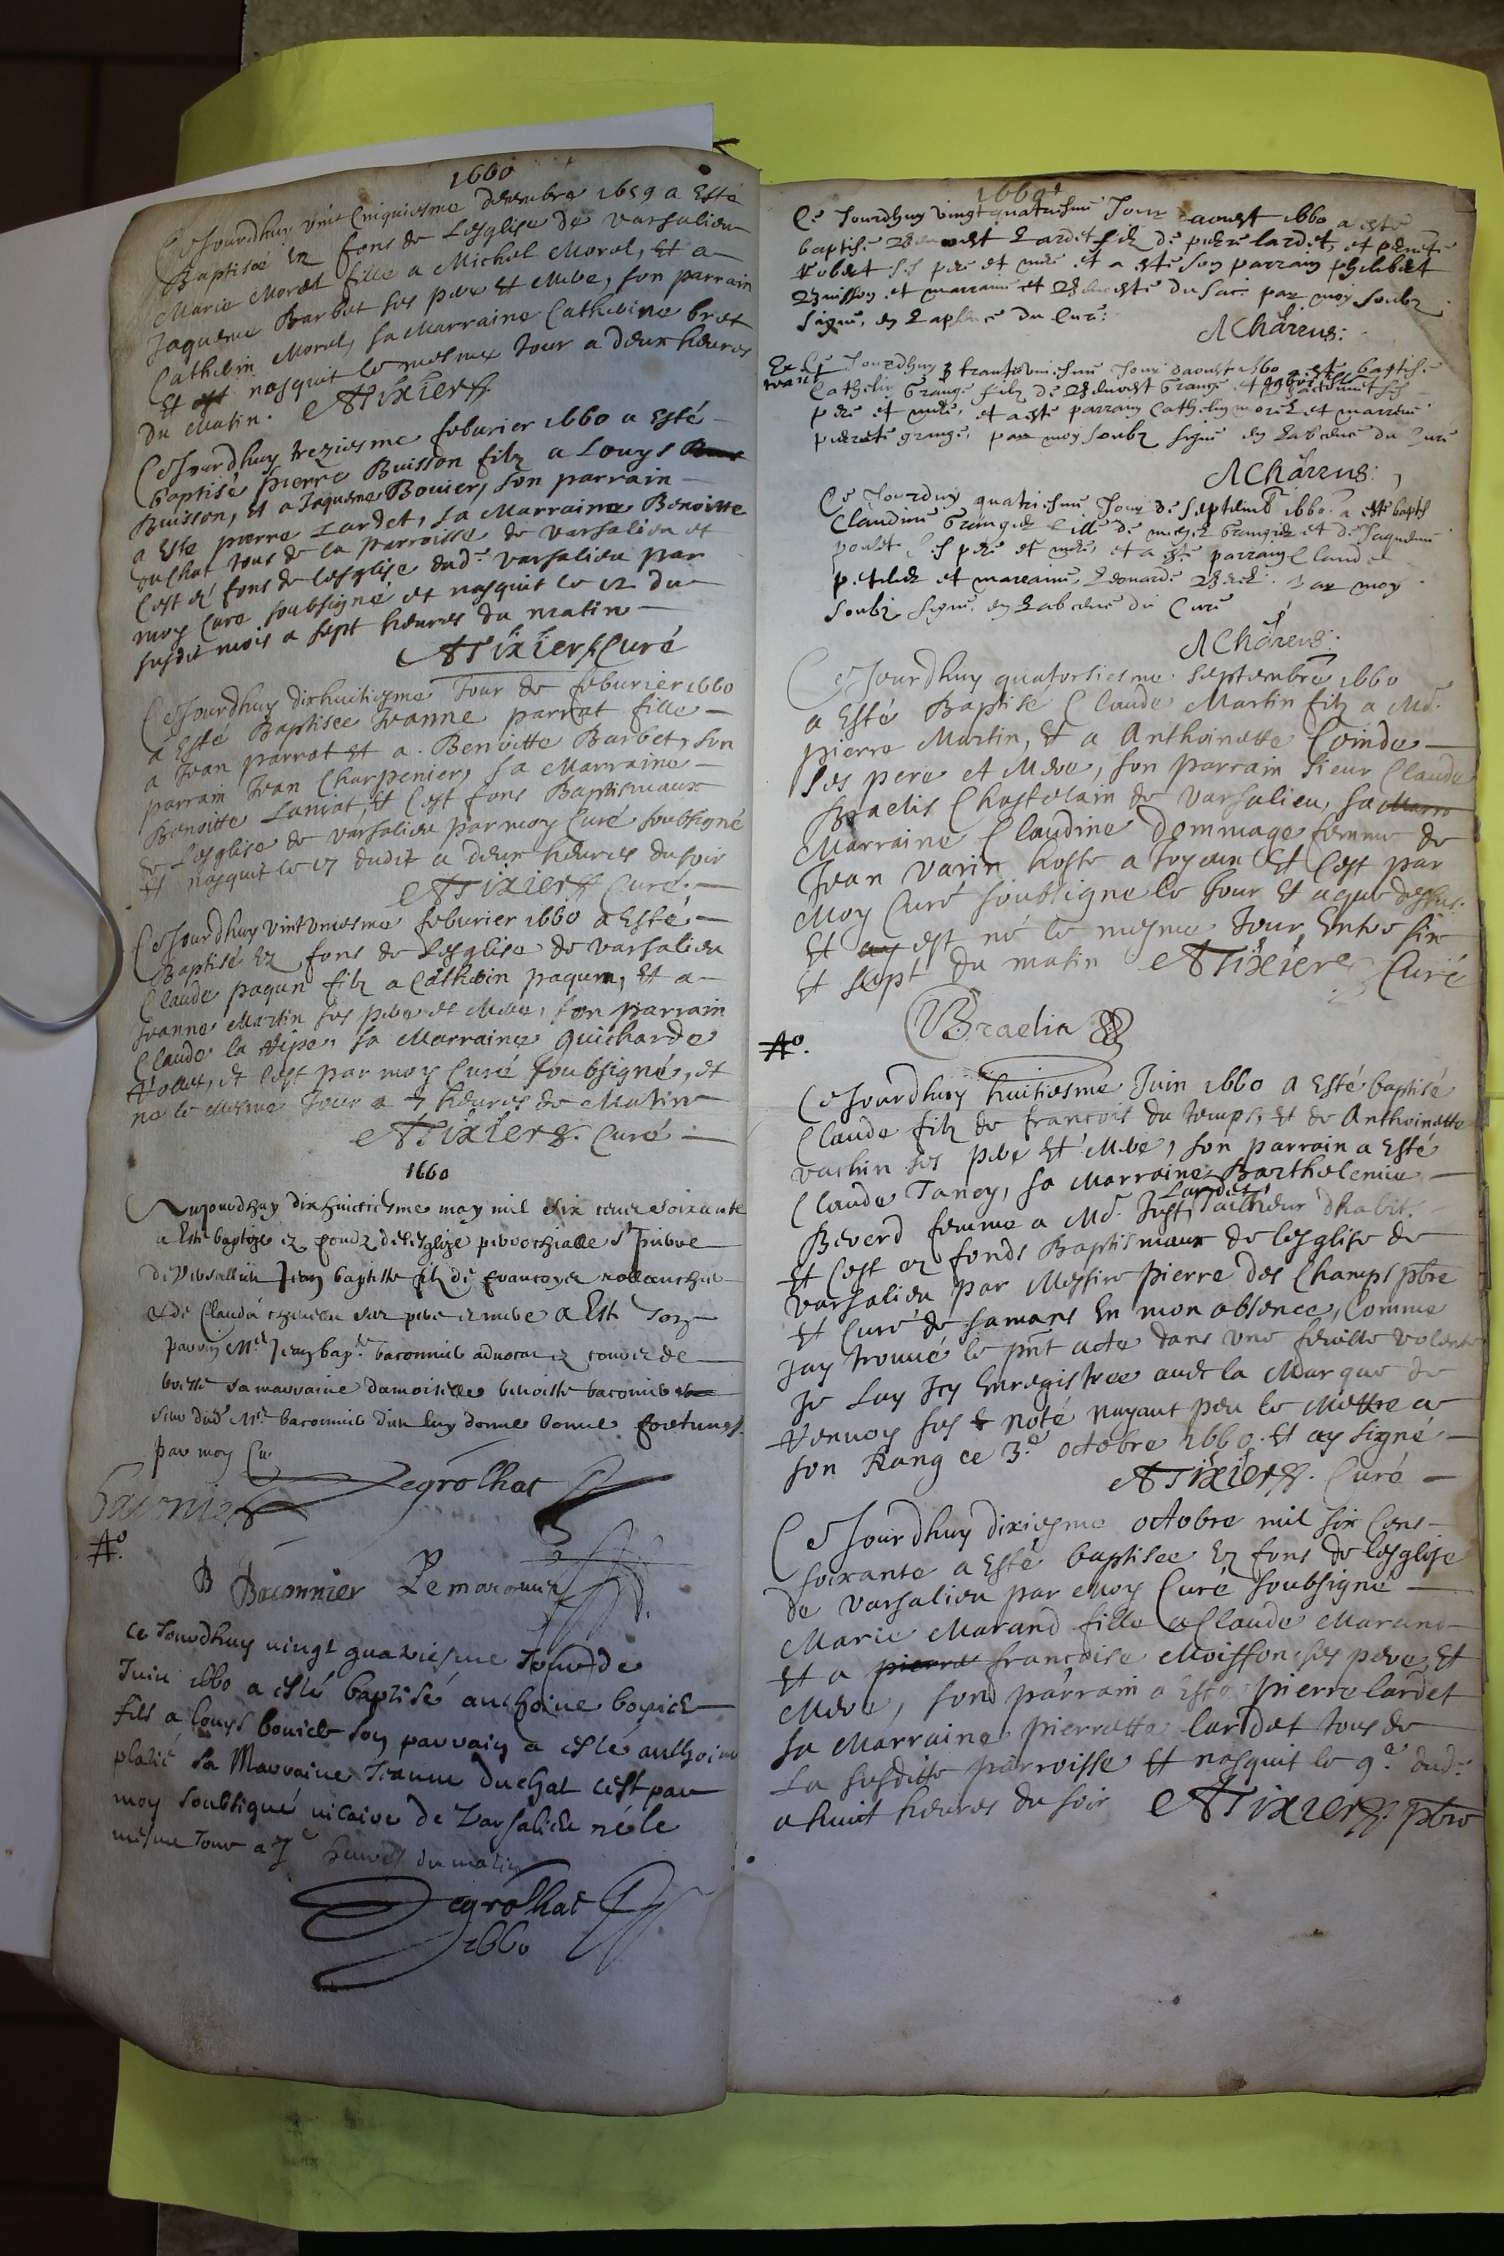 1660
Ce Jourdhuy vint Cinquiesme decembre 1659 a Esté
Baptisée Ez fons de Lesglise de varsalieu
Marie Morel fille a Michel Morel, Et a
Jaqueme Barbet ses pere Et Mere, son parrain
Cathelin Morel, sa Marraine Catherine bret
Et nasquit le mesme Jour a deux heures
du Matin. ATixier
Ce Jourdhuy treziesme feburier 1660 a Esté
baptisé pierre Buisson filz a Louys
Buisson, Et a Jaqueme Bouier, son parrain
a Este pierre Lardet, sa Marraine Benoitte
tous de la parroisse de varsalieu et
Cest ez fons de lesglise dud. varsalieu par
moy Curé soubsigné et nasquit le 12 du
susdit mois a sept heures du matin
ATixier Curé
Ce Jourdhuy dixhuitiesme Jour de feburier 1660
a Esté Baptisee Jeanne parrat fille
a Jean parrat Et a Benoitte Barbet, son
parrain Jean Charpenier, sa Marraine
Benoitte Laniat, Et Cest fons Baptismaux
de Lesglise de varsalieu par moy Curé soubsigné
Et nasquit le 17 dudit a deux heures du soir
ATixier Curé.
Ce Jourdhuy vint uniesme feburier 1660 a Esté
Baptisé Ez fons de Lesglise de varsalieu
Claude paqun filz a Cathelin paqum, Et a
Jeanne Martin ses pere et Mere, son parrain
Claude la sa Marraine Guicharde
et Cest par moy Curé soubsigné, et
né le Mesme Jour a 7 heures de Matin
ATixier. Curé
1660
Aujourdhuy dix huictiesme may mil six cens soixante
a Esté baptizé ez fondz de lesglize parrochialle St pierre
de Versallieu Jean baptiste filz de francoys
& de Clauda ses pere et mere a Esté son
parrin Mre Jean bapte. baconnier advocat ez
sa marraine damoiselle benoiste baconnier
dud Mre baconnier dieu luy donne bonne fortune.
par moy
Degrolhat
baconnier
Ao.
B Baconnier
Ce Jourdhuy vingt quatriesme Jour de
Juin 1660 a esté baptisé anthoine bouier
fils a Louys bouier son parrain a esté anthoine
platié sa Marraine Jeanne duchat cest par
moy soubsigné vicaire de Varsalieu né le
mesme Jour a 7 heures du matin
Degrolhat
1660
1660
Ce Jourdhuy vingt quatriesme Jour daoust 1660 a esté
baptisé Lardet filz de pierre lardet, et pernete
robert ses pere et mere et a esté son parrain philibert
Buisson et marraine du sac. par moy soubz
signé, en Laplace du Curé:
AChareus:
Ce Jourdhuy trante uniesme Jour daoust 1660 a esté baptisé
Cathelin Grange filz de Grange et
pere et mere, et a esté parrain Cathelin morel et marreine
pierrete grange, par moy soubz signé en Labsence du Curé
AChareus:
Ce Jourduy quatriesme Jour de septemb 1660. a esté baptis
Claudine Grangier fille de michel Grangier et de Jaqueme
poulet ses pere et mere, et a esté parrain Claude
et marraine, Leonarde par moy
soubz signé en Labsence du Curé
AChareus:
Ce Jourdhuy quatorsiesme septembre 1660
a Esté Baptisé Claude Martin filz a Me.
pierre Martin, Et a Anthoinette Coinde
ses pere et Mere, son parrain sieur Claude
Braelis Chastelain de varsalieu, sa Marra
Marraine Claudine dommage femme de
Jean varin hoste a Et Cest par
Moy Curé soubsigné le Jour Et a que dessus.
Et ay est né le mesme Jour Entre six
Et sept du matin ATixier Curé
Braelin
Ao.
Ce Jourdhuy huitiesme Juin 1660 a Esté baptisé
Claude filz de francois du temps, Et de Anthoinette
vachin ses pere Et Mere, son parrain a Esté
Claude Taney, sa Marraine Barthelemie
Lardet
Beverd femme a Me. Just tailheur dhabit.
Et Cest ez fonds Baptismaux de lesglise de
varsalieu par Messire pierre des Champs pbre
Et Curé de samans En mon absence, Comme
Jay trouué le pnt acte dans une feuille volante
Je Lay Icy Enregistree auec la Marque de
Renuoy noté nayant peu le Mettre a
son Rang ce 3e. octobre 1660. Et ay signé
ATixier. Curé
Ce Jourdhuy dixiesme octobre mil six Cens
soixante a Esté baptisee Ez fons de lesglise
de varsalieu par moy Curé soubsigné
Marie Marand fille a Claude Marand
Et a pierre francoise Moisson ses pere, Et
Mere, son parrain a Esté pierre lardet
sa Marraine pierrette lardet tous de
La susditte parroisse Et nasquit le 9e. dud.
a huict heures du soir ATixier. pbre